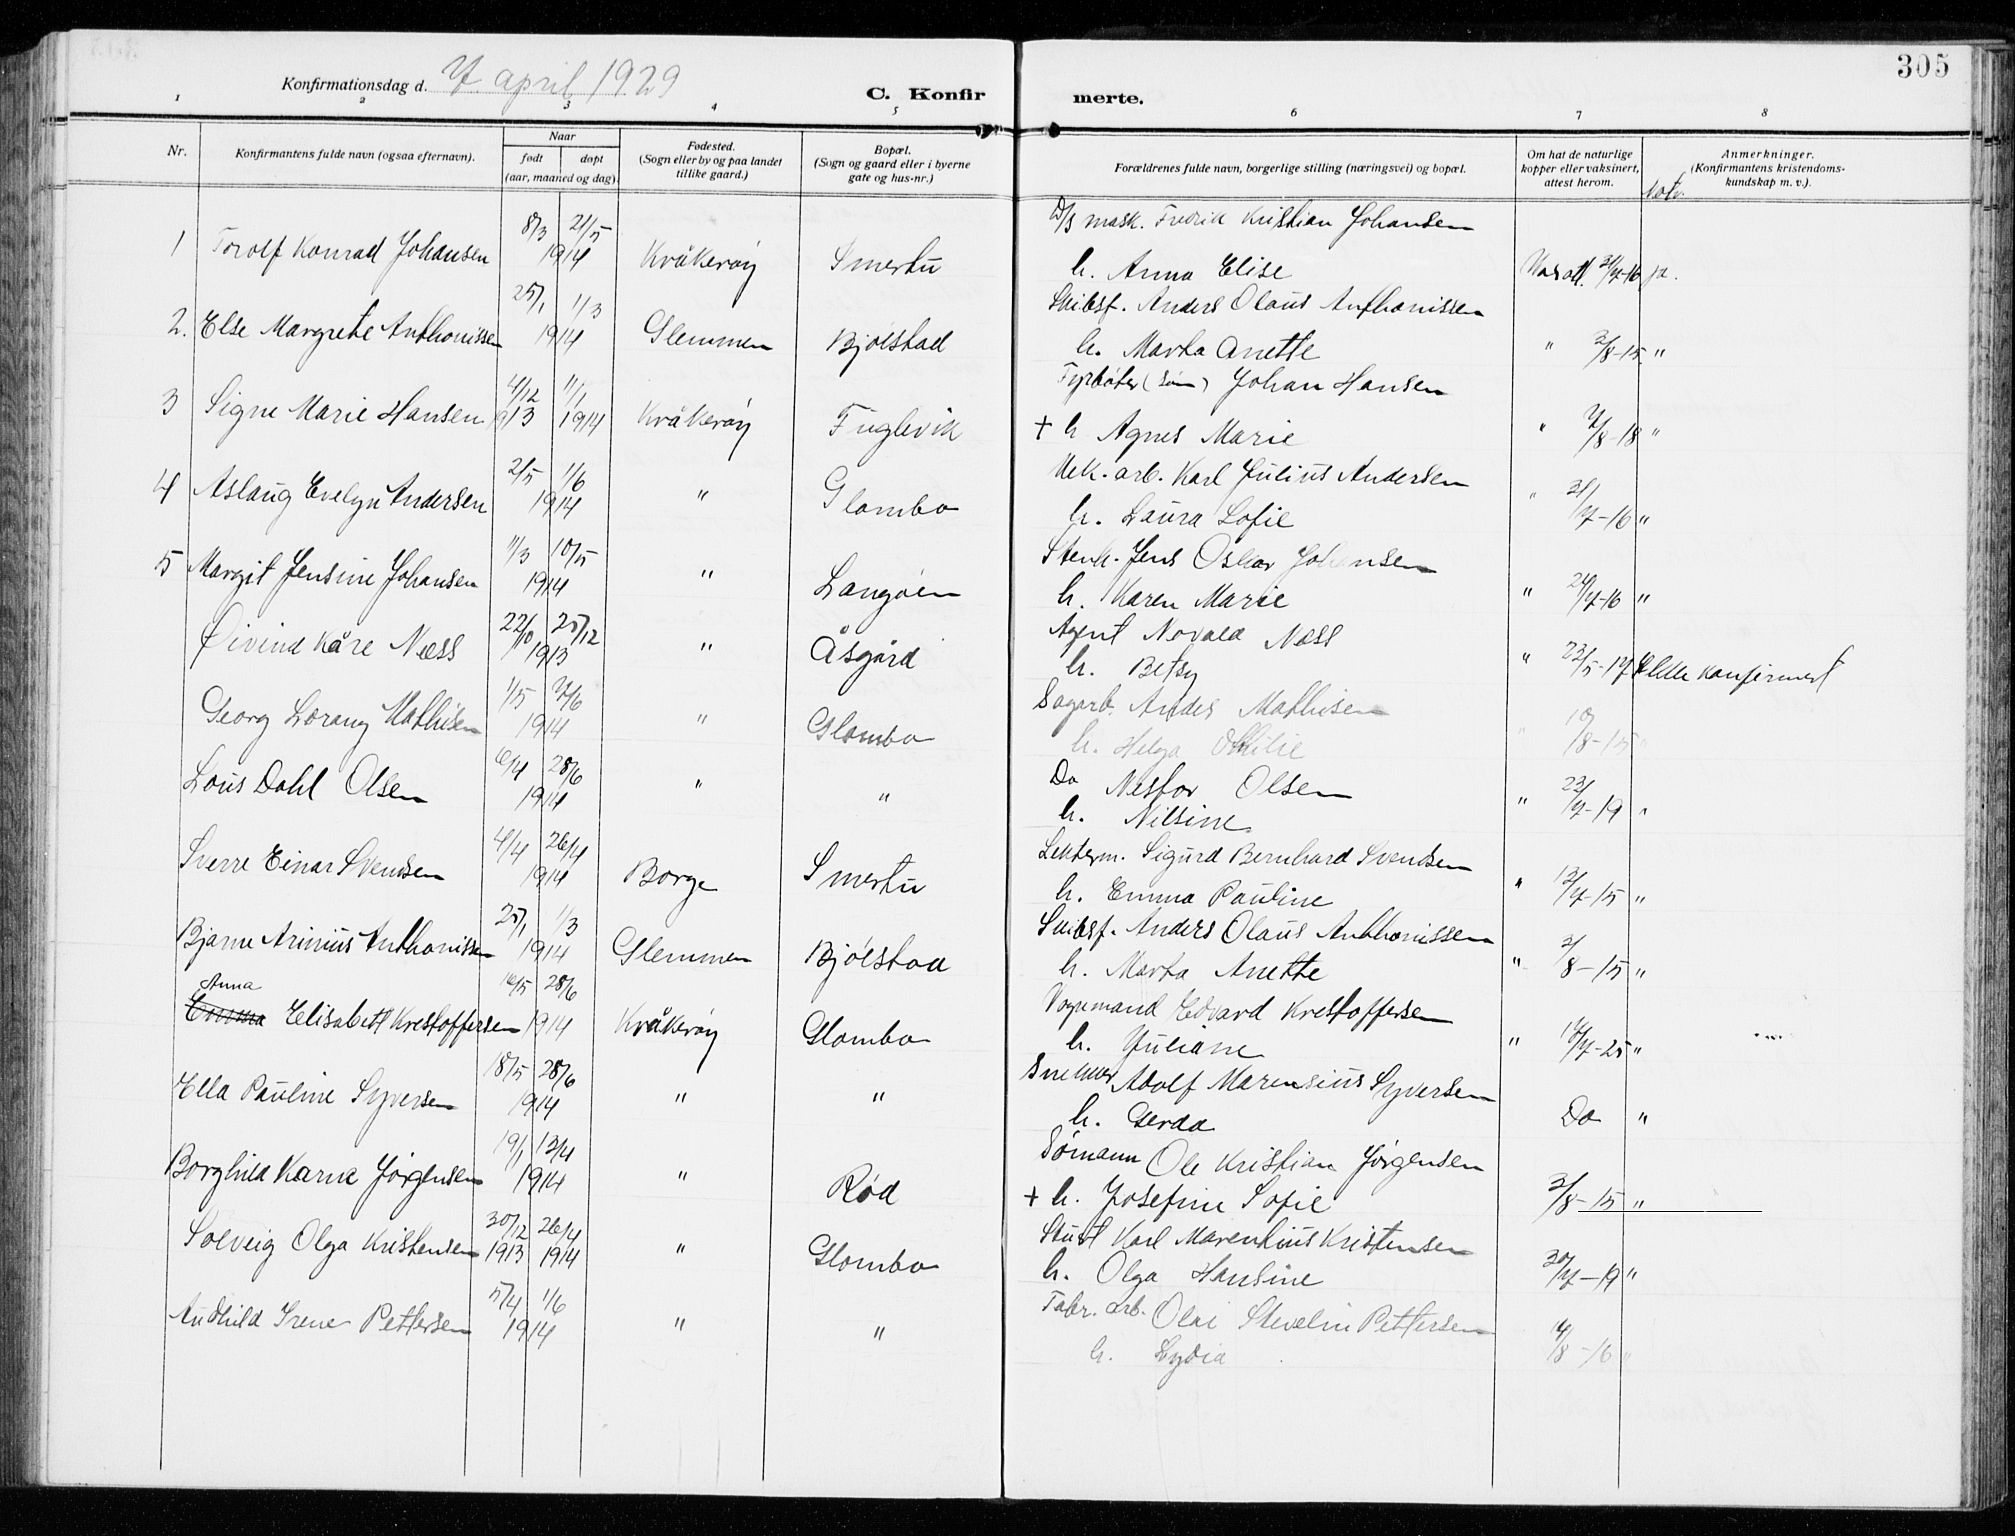 305
Konfirmationsdag d. 7 april 1929
C. Konfirmerte.
1 2 3 4 5 6 7 8
Nr.
Konfirmantens fulde navn (ogsaa efternavn).
Naar
født døpt
(aar, maaned og dag).
Fødested.
(Sogn eller by og paa landet
tillike gaard.)
Bopæl.
(Sogn og gaard eller i byerne
gate og hus-nr.)
Forældrenes fulde navn, borgerlige stilling (næringsvei) og bopæl.
Om hat de naturlige
kopper eller vaksinert,
attest herom.
Anmerkninger.
(Konfirmantens kristendoms-
kundskap m. v.).
8/3 21/5 D/s mask. Fredrik Kristian Johansen
1 Torolf Konrad Johansen 1914 Kråkerøy Smertu h. Anna Elise
25/1 1/3 Skibsf. Anders Olaus Anthonissen
2. Else Margrete Anthonissen 1914 Glemmen Bjølstad h. Marta Anette " 3/8-15 "
4/12 11/1 Fyrbøter (søm) Johan Hansen
3 Signe Marie Hansen 1913 1914 Kråkerøy Fuglevik + h Agnes Marie " 7/8-18 "
2/5 1/6 Mek. arb. Karl Julius Andersen
4 Aslaug Evelyn Andersen 1914 " Glombo h. Laura Sofie " 31/7-16 "
11/3 10/5 Stenh. Jens Oskar Johansen
5 Margit Jensine Johansen 1914 " Langøen h. Karen Marie " 24/7-16 "
22/10 25/12 Agent Norvald Næss
Øivind Kåre Næss 1913 " Åsgård h. Betsy " 23/5-17 Ikke konfirmert
1/5 7/6 Sagarb. Andes Mathisen
Georg Lorang Mathisen 1914 " Glombo h. Helga Othilie " 10/8-15 "
6/4 28/6 Do Nestor Olsen
Lous Dahl Olsen 1914 " " h. Nilsine " 23/7-19 "
4/4 26/4 Lekterm. Sigurd Bernhard Svendsen
Sverre Einar Svendsen 1914 Borge Smertu h. Emma Pauline " 13/7-15 "
25/1 1/3 Skibsf. Anders Olaus Anthonissen
Bjarne Arinius Anthonissen 1914 Glemmen Bjølstad h. Marta Anette " 3/8-15 "
Anna 16/5 28/6 Vognmand Edvard Krestoffersen
Emma Elisabett Krestoffersen 1914 Kråkerøy Glombo h. Juliane "
18/5 28/6 Snekker Adolf Marensius Syversen
Ella Pauline Syversen 1914 " " h. Gerda Do "
19/1 13/4 Sømann Ole Kristian Jørgensen
Borghild Karne Jørgensen 1914 " Rød + h. Josefine Sofie 3/8-15 "
30/12 26/4 Karl Marentius Kristensen
Solveig Olga Kristensen 1913 1914 " Glombo h. Olga Hansine 30/7-19 "
5/4 1/6 Fabr. arb. Olai Stevelin Pettersen
Audhild Irene Pettersen 1914 " " h. Lydia